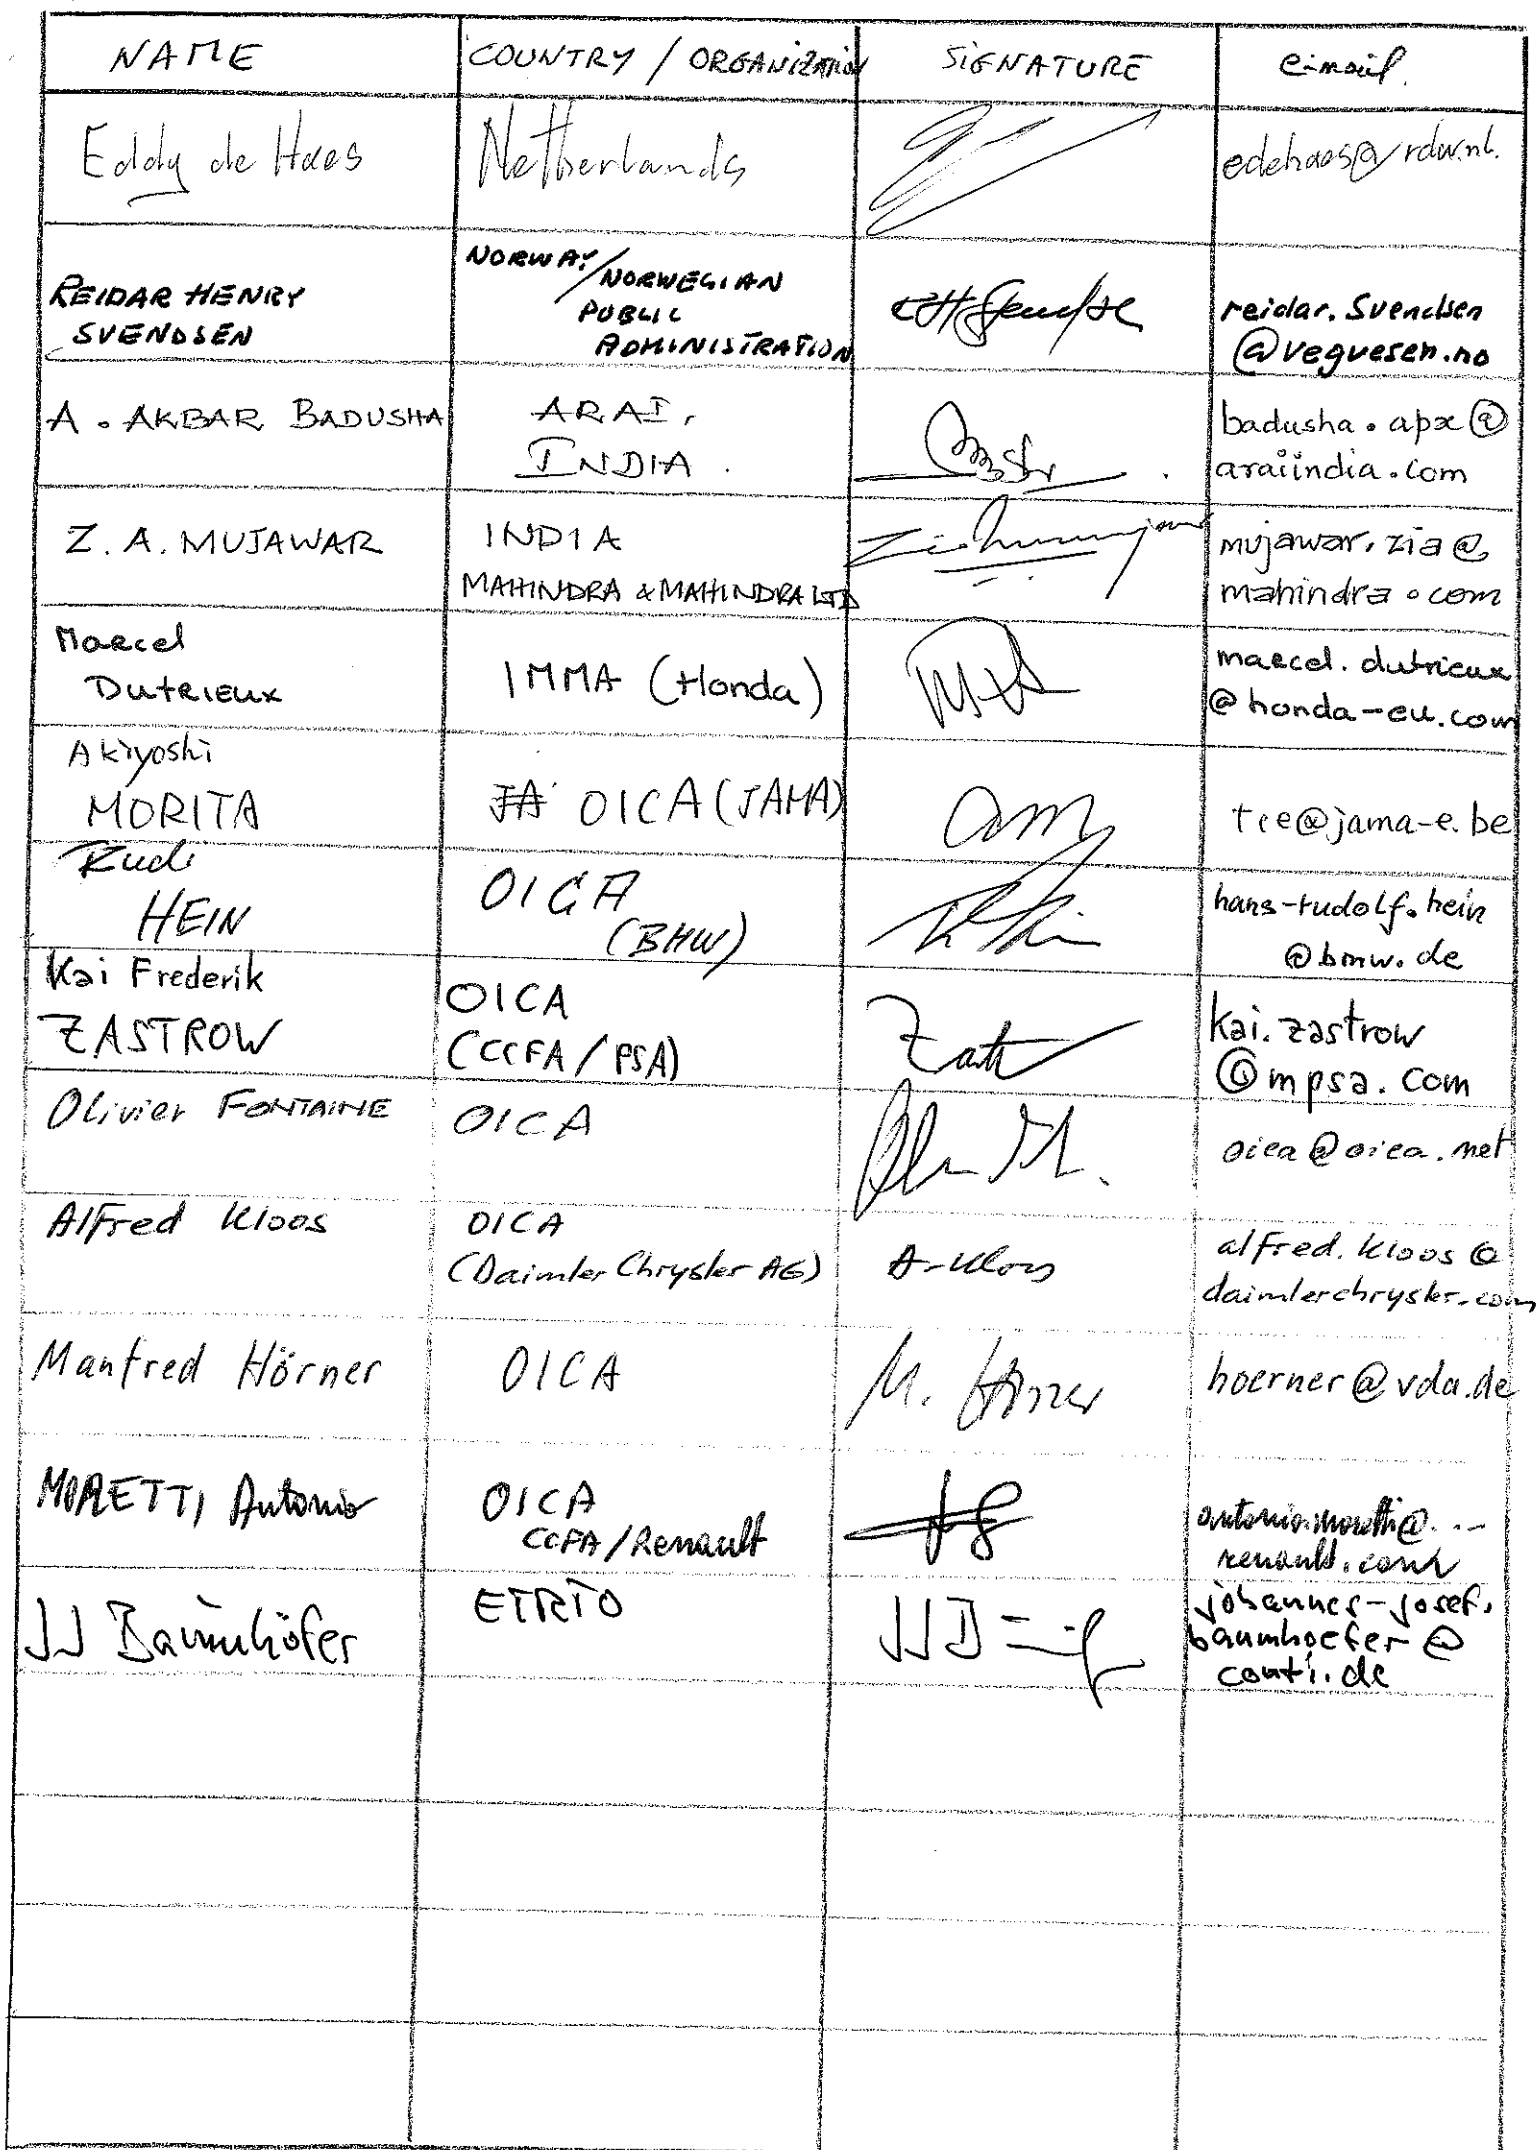 NAME COUNTRY / ORGANIZATION SIGNATURE e-mail.
Eddy de Haas Netherlands edehaas@rdw.nl.
REIDAR HENRY
SVENDSEN
NORWAY/NORWEGIAN
PUBLIC
ADMINISTRATION
reidar.Svendsen
@vegvesen.no
A. AKBAR BADUSHA
ARAI,
INDIA.
badusha.apx@
araiindia.com
Z. A. MUJAWAR
INDIA
MAHINDRA & MAHINDRA LTD
mujawar.zia@
mahindra.com
Marcel
Dutrieux
IMMA (Honda)
marcel.dutrieux
@honda-eu.com
Akiyoshi
MORITA
JA OICA (JAMA)
tce@jama-e.be
Rudi
HEIN
OICA
(BMW)
hans-rudolf.hein
@bmw.de
Kai Frederik
ZASTROW
OICA
(CCFA/PSA)
kai.zastrow
@mpsa.com
Olivier FONTAINE
OICA
oica@oica.net
Alfred Kloos
OICA
(DaimlerChrysler AG)
A. Kloos
alfred.kloos@
daimlerchrysler.com
Manfred Hörner
OICA
M. Hörner
hoerner@vda.de
MORETTI Antonio
OICA
CCFA/Renault
antonio.moretti@...
renault.com
JJ Baumhöfer
ETRTO
johannes-josef.
baumhoefer@
conti.de